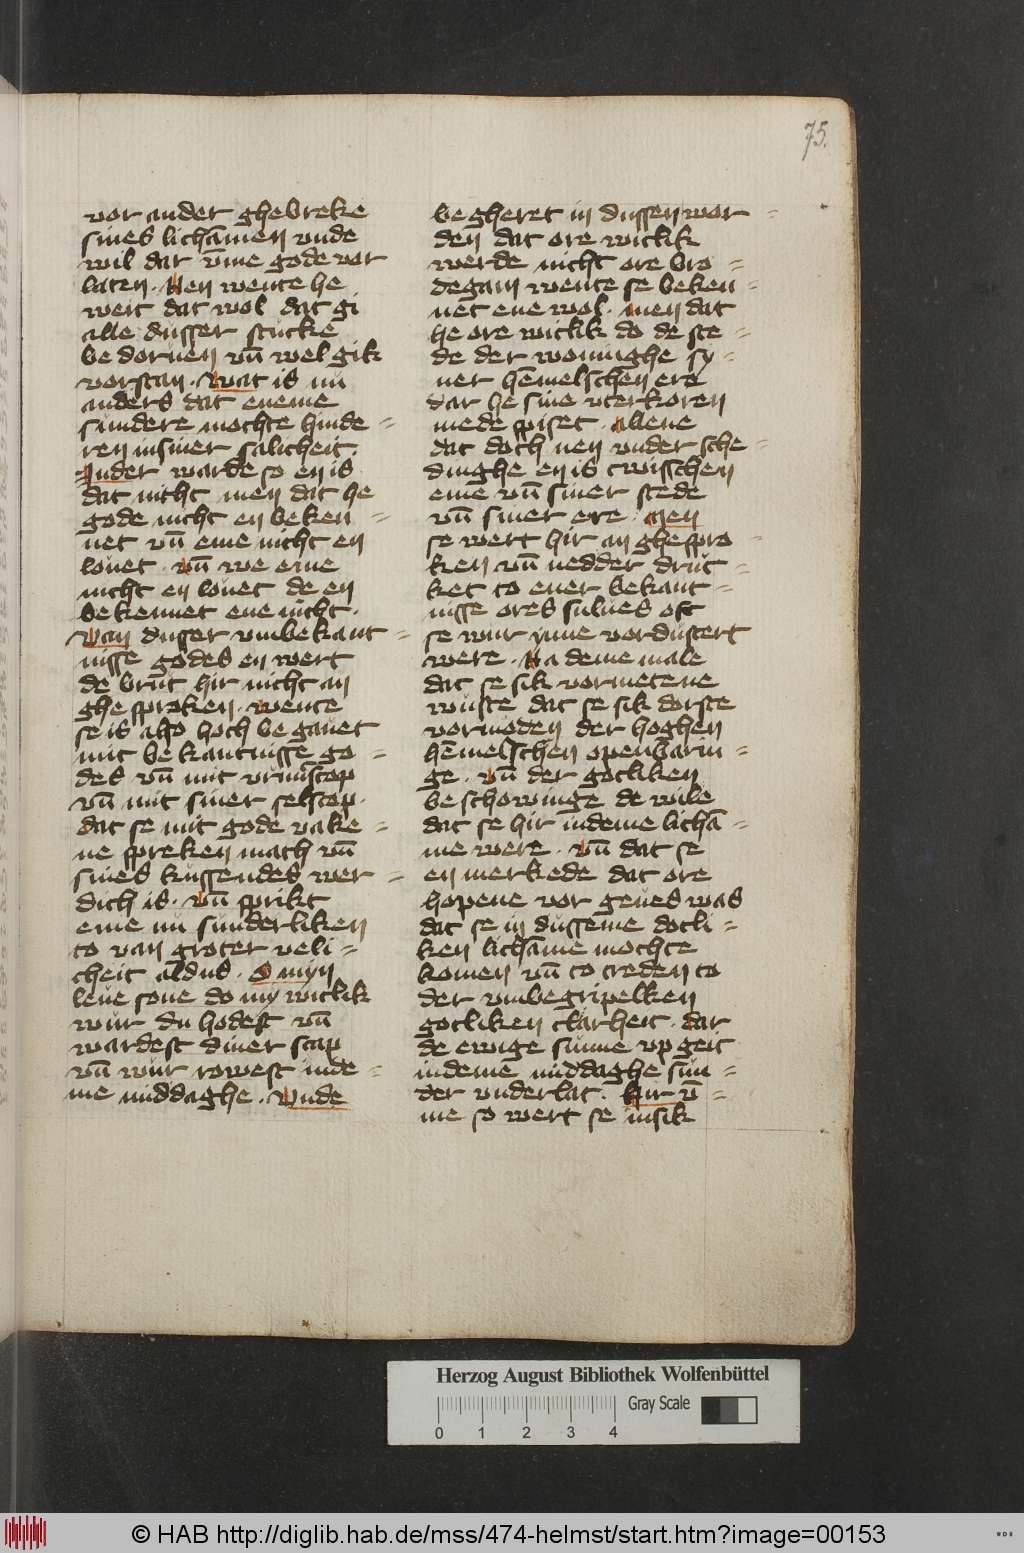 75.
vor ander ghebreke
sines lichāmen vnde
wil dar v̄me gode vor
laten. Men wente he
weit dat wol dat gi
alle dusser stucke
be doruen vn̄ wel gik
vorstan. Wat is nu
anders dat eneme
sundere mochte hinde=
ren insiner salicheit.
Inder warde so en is
dat nicht men dat he
gode nicht en beken=
net vn̄ eme nicht en
louet. vn̄ we eme
nicht en louet de en
bekennet ene nicht.
Van dusser vmbekant=
nisse godes en wert
de brut hir nicht an
ghe sproken. wente
se is also hoch be gauet
mit be kantnisse go=
des vn̄ mit vruntscop
vn̄ mit siner selscop.
dat se mit gode vake=
ne spreken mach vn̄
sines kussendes wer=
dich is. vn̄ sprikt
eme nu sunderliken
to van groter veli=
cheit aldus. O myn
leue sone do my witlik
wur du hodest vn̄
wardest diner scap
vn̄ wur rowest inde=
me middaghe. Vnde
begheret in dussen wor=
den dat ore witlik
werde nicht ore bro=
degam wente se beken=
net ene wol. men dat
he ore witlik do de ste=
de der woninghe sy=
ner hēmelschen ere
dar he sine vterkoren
mede spiset. Allene
dat doch nen vnder sche=
dinghe en is twisschen
eme vn̄ siner stede
vn̄ siner ere. Men
se wert hir an ghespro=
ken vn̄ nedder druc=
ket to ener bekant=
nisse ores sulues oft
se wur ynne vordustert
were. Na deme male
dat se sik vormetene
wuste dat se sik dorste
vormoden der hoghen
hēmelschen openbarin=
ge. vn̄ der gotliken
be schowinge de wile
dat se hir indeme lichā=
me were. vn̄ dat se
en merkede dat ore
hopene vor geues was
dat se in dusseme dotli=
ken lichāme mochte
komen vn̄ to treden to
der vmbegripelken
gotliken clarheit. dar
de ewige sunne vp geit
indemē middaghe sun=
der vnderlat. Hir v̄=
me so wert se insik
Herzog August Bibliothek Wolfenbüttel
0 1 2 3 4
Gray Scale
© HAB http://diglib.hab.de/mss/474-helmst/start.htm?image=00153